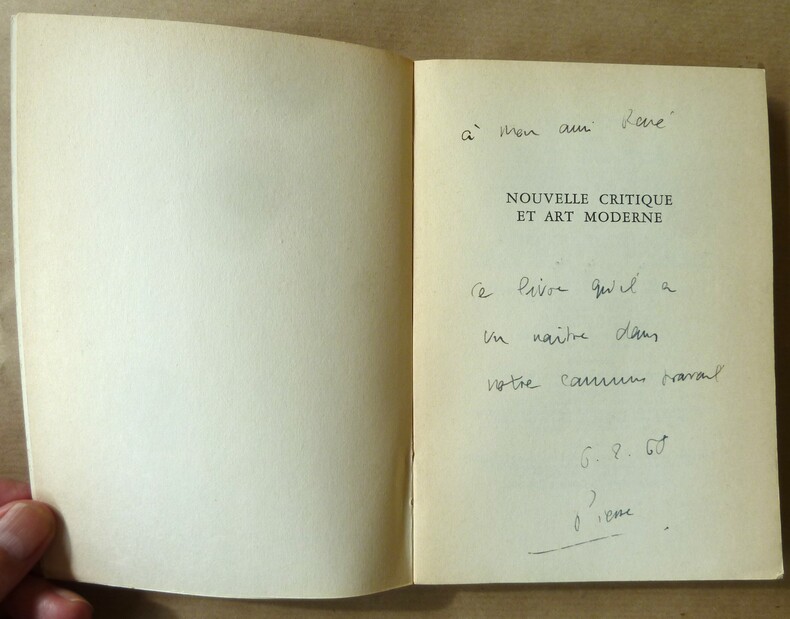 à mon ami René
NOUVELLE CRITIQUE
ET ART MODERNE
ce livre qu'il a
vu naître dans
notre commun travail
6.2.68
Pierre